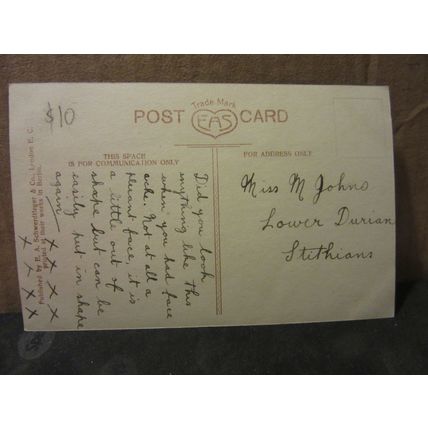 $10
Trade Mark
POST EAS CARD
THIS SPACE
IS FOR COMMUNICATION ONLY
FOR ADDRESS ONLY
Did you look
anything like this
when you had face
ache. Not at all a
pleasant face, it is
a little out of
shape but can be
easily put in shape
again
x x x x
x x x x
Miss M Johns
Lower Durian
Stithians
Published by E. A. Schwerdtfeger & Co., London E. C.
Printed at their works in Berlin.